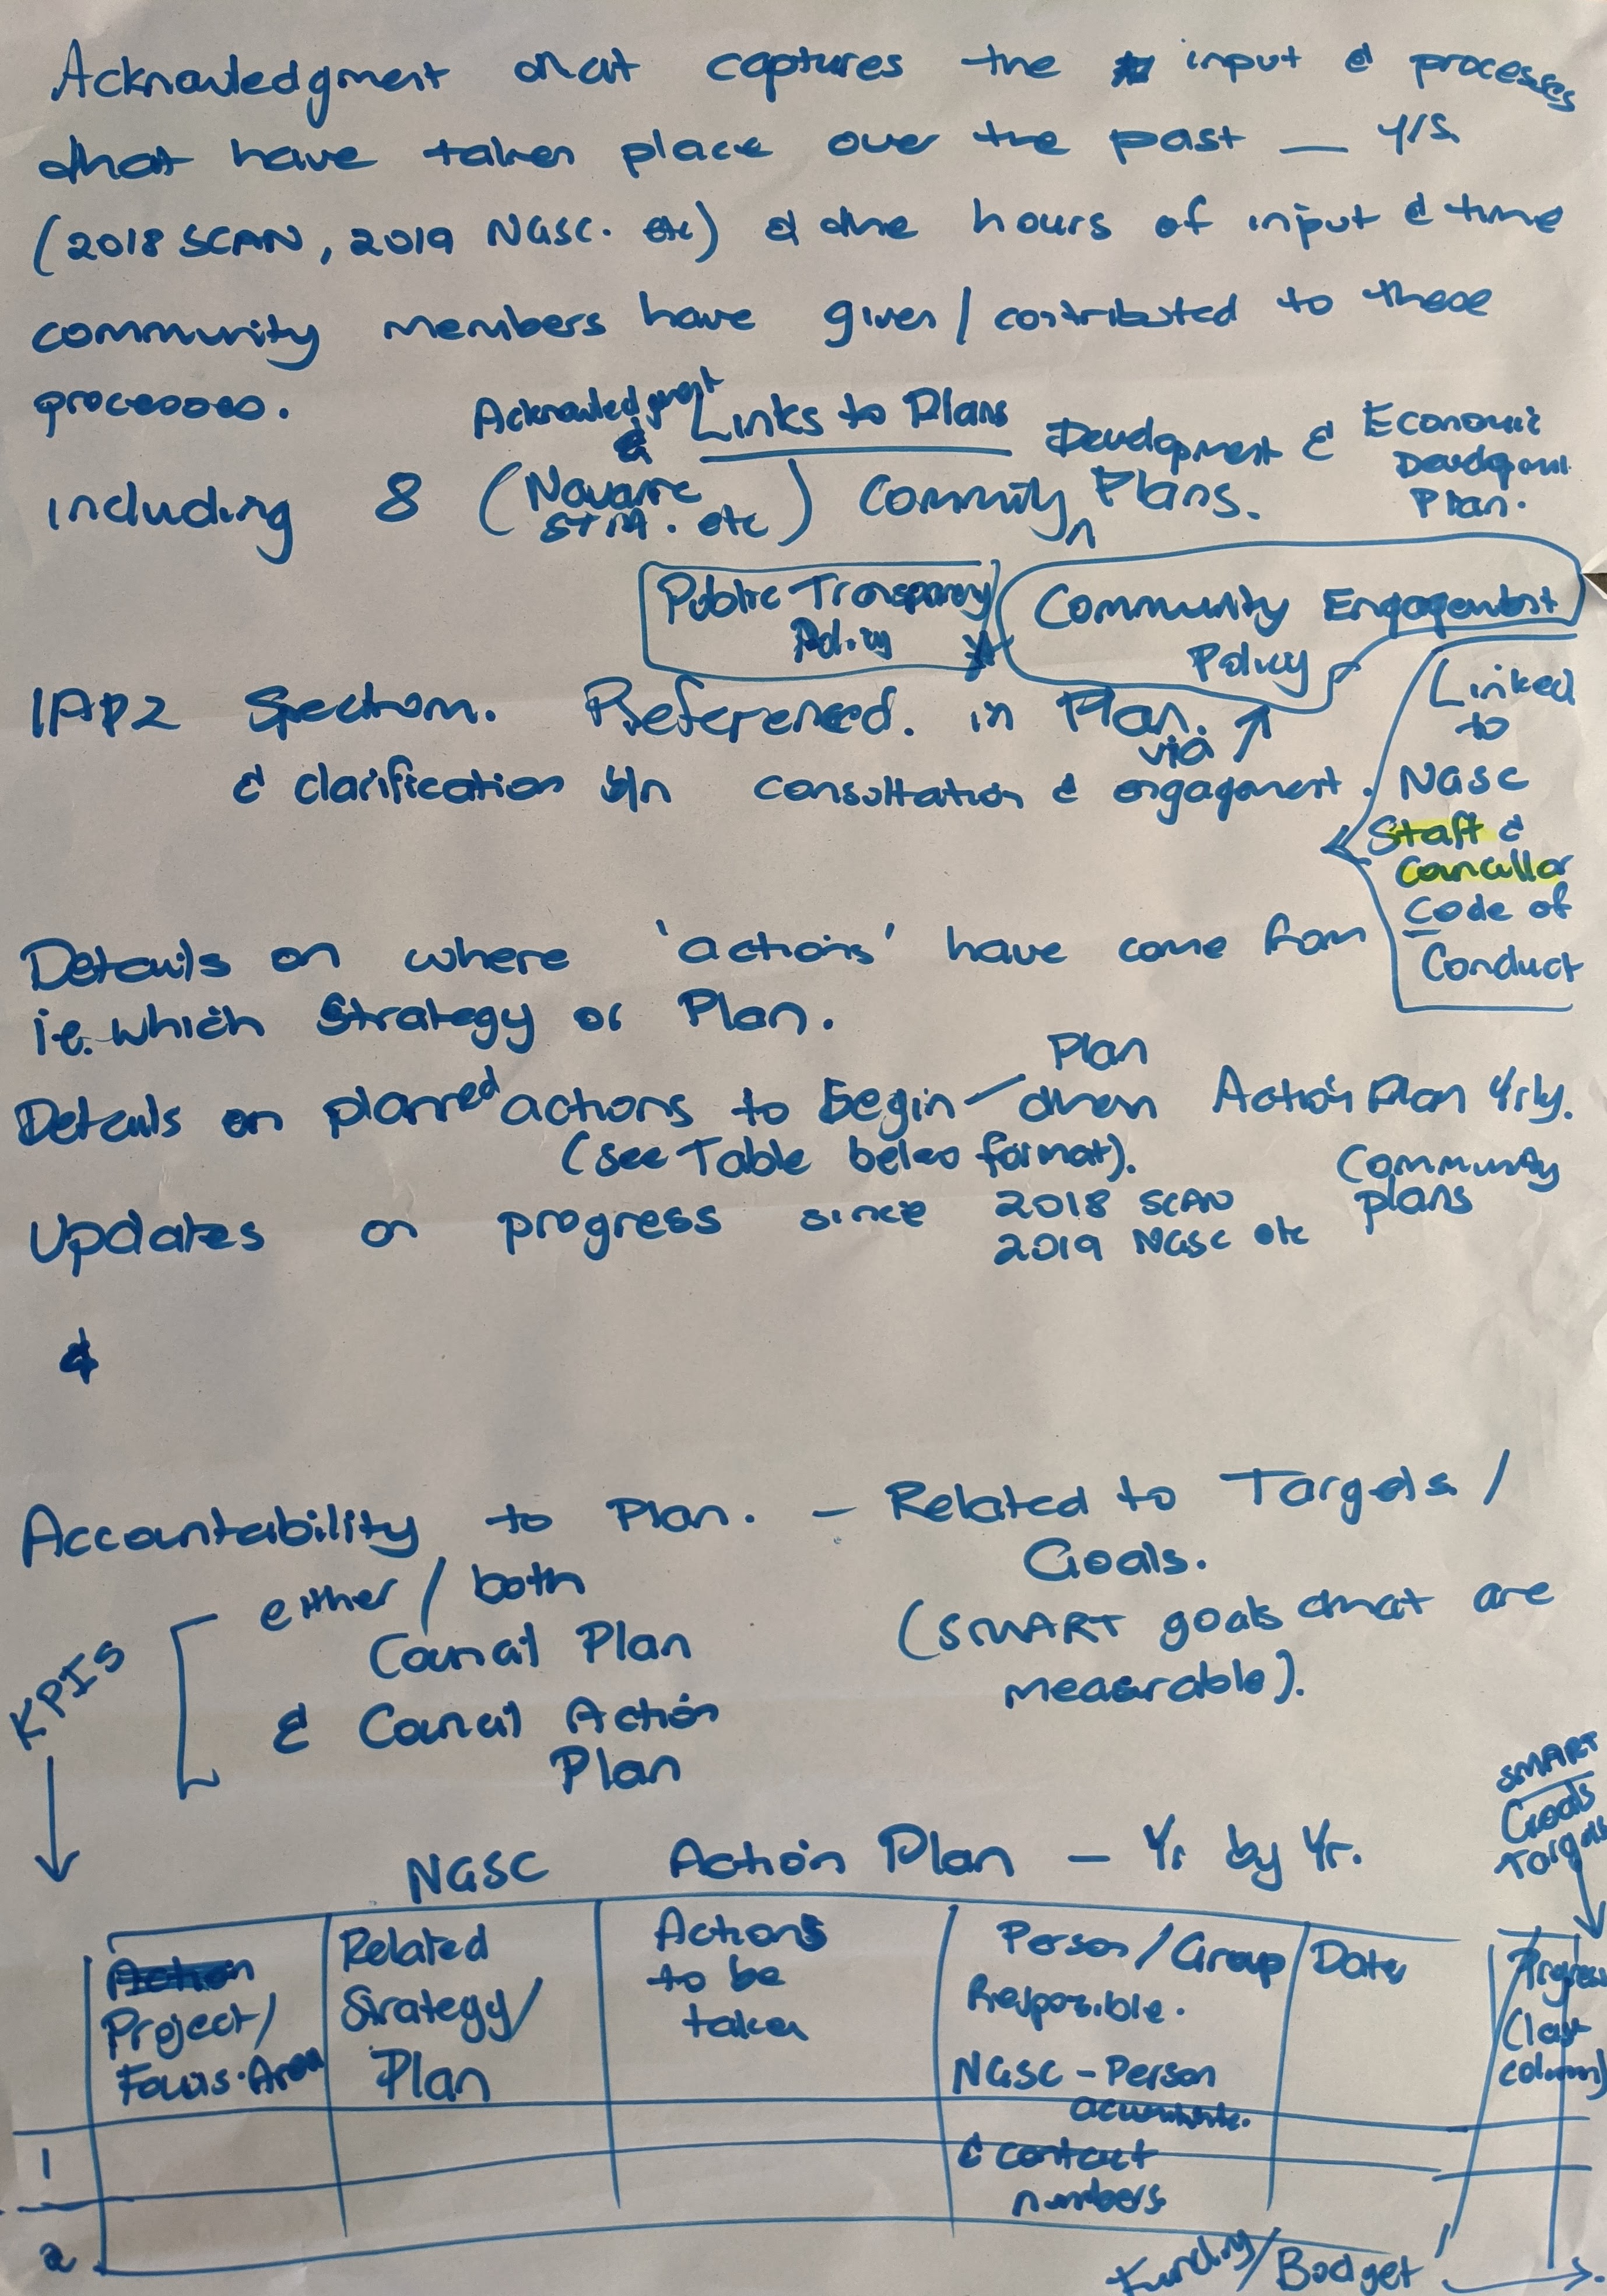 Acknowledgment that captures the input & processes
that have taken place over the past — yrs.
(2018 SCAN, 2019 NGSC. etc) & the hours of input & time
community members have given / contributed to these
processes.
Acknowledgment
& Links to Plans
including 8 (Navarre
STM. etc) Commity Plans.
Development & Economic
Development
Plan.
Public Transparency
Policy
Community Engagement
Policy
IAP2 Spectrum. Referenced. in Plan.
via
& clarification b/n consultation & engagement.
Linked
to
NGSC
Staff &
Councillor
Code of
Conduct
Details on where 'actions' have come from
i.e. which Strategy or Plan.
Details on planned actions to begin – Plan
then Action Plan Yrly.
(see Table below format).
Updates on progress since 2018 SCAN
2019 NGSC etc
Community
plans
&
Accountability to Plan. – Related to Targets /
Goals.
(SMART goals that are
measurable).
either / both
Council Plan
& Council Action
Plan
KPIs
SMART
Goals
Targets
NGSC Action Plan – Yr by Yr.
Action
Project /
Focus Area
Related
Strategy /
Plan
Actions
to be
taken
Person / Group
Responsible.
NGSC – Person
& contact
numbers
Date
Progress
(last
column)
1
2
Funding / Budget